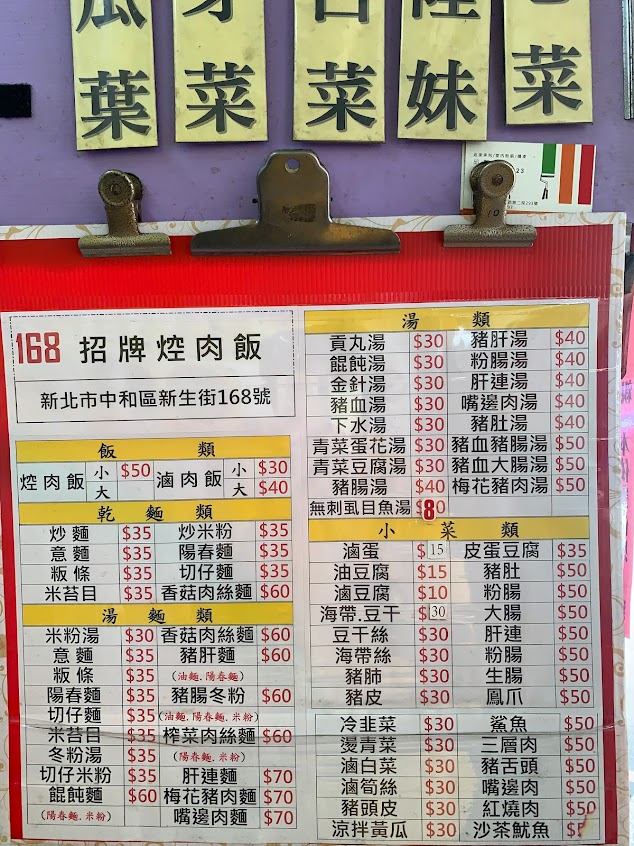 葉 菜 菜 妹 菜
168 招牌焢肉飯
新北市中和區新生街168號
飯 類
焢肉飯 小 $50 滷肉飯 小 $30
大 大 $40
乾麵類
炒麵 $35 炒米粉 $35
意麵 $35 陽春麵 $35
粄條 $35 切仔麵 $35
米苔目 $35 香菇肉絲麵 $60
湯麵類
米粉湯 $30 香菇肉絲麵 $60
意麵 $35 豬肝麵 $60
粄條 $35 (油麵.陽春麵)
陽春麵 $35 豬腸冬粉 $60
切仔麵 $35 (油麵.陽春麵.米粉)
米苔目 $35 榨菜肉絲麵 $60
冬粉湯 $35 (陽春麵.米粉)
切仔米粉 $35 肝連麵 $70
餛飩麵 $60 梅花豬肉麵 $70
(陽春麵.米粉) 嘴邊肉麵 $70
湯 類
貢丸湯 $30 豬肝湯 $40
餛飩湯 $30 粉腸湯 $40
金針湯 $30 肝連湯 $40
豬血湯 $30 嘴邊肉湯 $40
下水湯 $30 豬肚湯 $40
青菜蛋花湯 $30 豬血豬腸湯 $50
青菜豆腐湯 $30 豬血大腸湯 $50
豬腸湯 $40 梅花豬肉湯 $50
無刺虱目魚湯 $80
小菜類
滷蛋 $15 皮蛋豆腐 $35
油豆腐 $15 豬肚 $50
滷豆腐 $10 粉腸 $50
海帶.豆干 $30 大腸 $50
豆干絲 $30 肝連 $50
海帶絲 $30 粉腸 $50
豬肺 $30 生腸 $50
豬皮 $30 鳳爪 $50
冷韭菜 $30 鯊魚 $50
燙青菜 $30 三層肉 $50
滷白菜 $30 豬舌頭 $50
滷筍絲 $30 嘴邊肉 $50
豬頭皮 $30 紅燒肉 $50
涼拌黃瓜 $30 沙茶魷魚